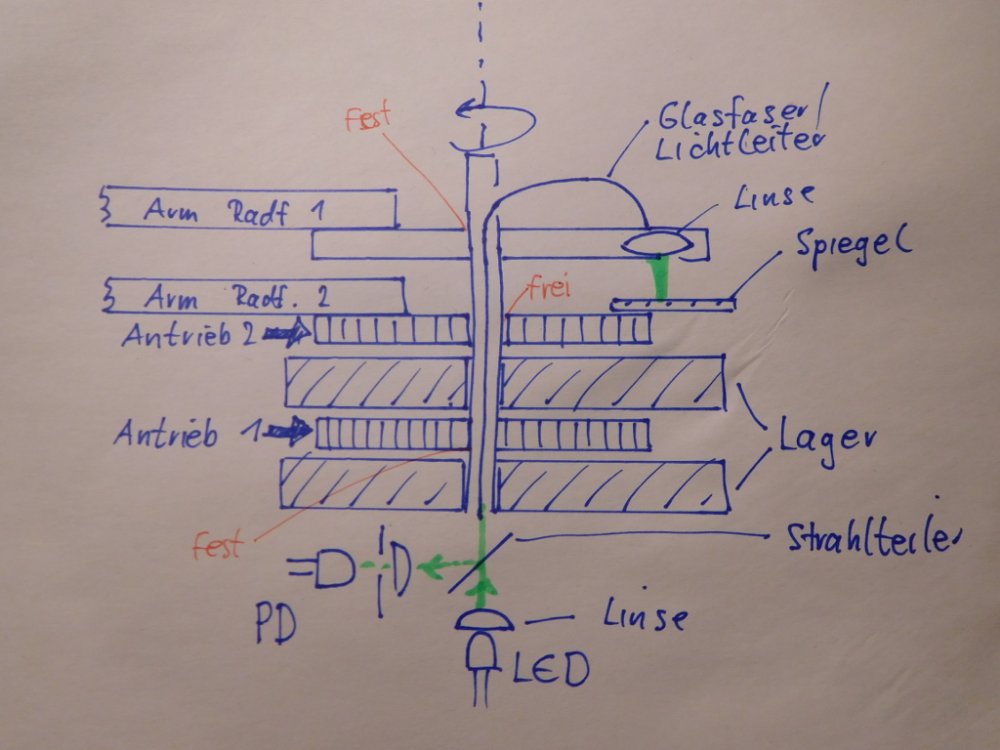 fest
Glasfaser/
Lichtleiter
Arm Radf 1
Linse
Spiegel
Arm Radf. 2
frei
Antrieb 2
Antrieb 1
Lager
fest
Strahlteiler
PD
Linse
LED